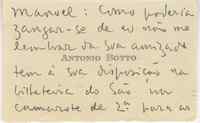 Manoel: Como poderia
zangar-se de eu não me
lembrar da sua amizade
ANTONIO BOTTO
tem à sua disposição na
bilheteria do São um
camarote de 2ª para as